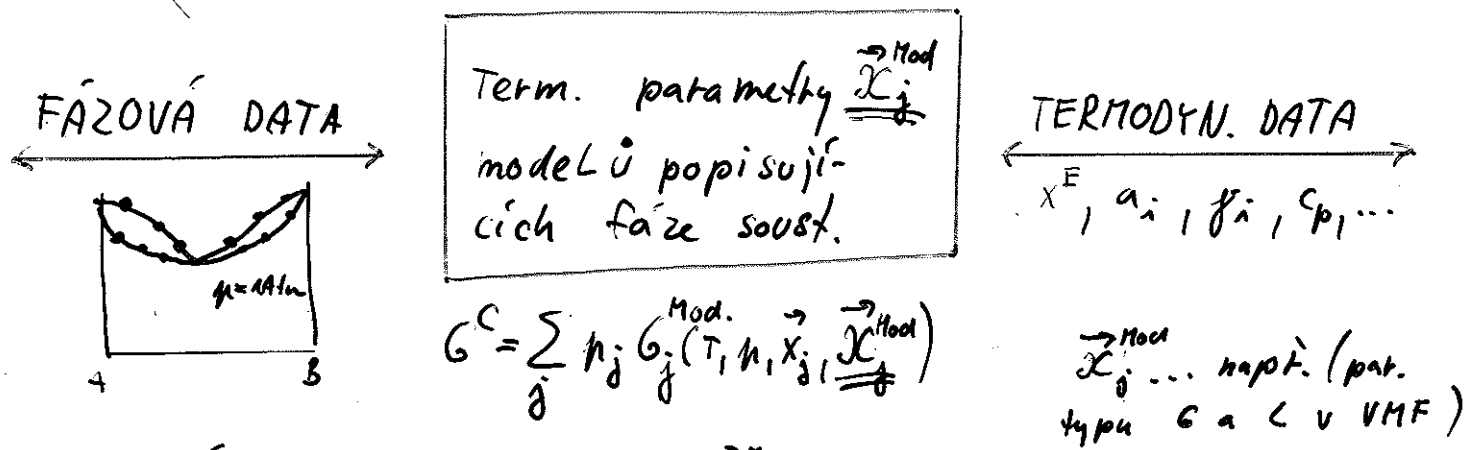 FÁZOVÁ DATA
p=1Atm
A B
Term. parametry 𝒳⃗ⱼ^Mod
modelů popisují-
cích fáze soust.
G^C = Σ_j n_j G_j^Mod. (T, p, x⃗_j, 𝒳⃗_j^Mod)
TERMODYN. DATA
X^E, a_i, γ_i, c_p, ...
𝒳⃗_j^Mod ... např. (par.
typu G a L v VMF)